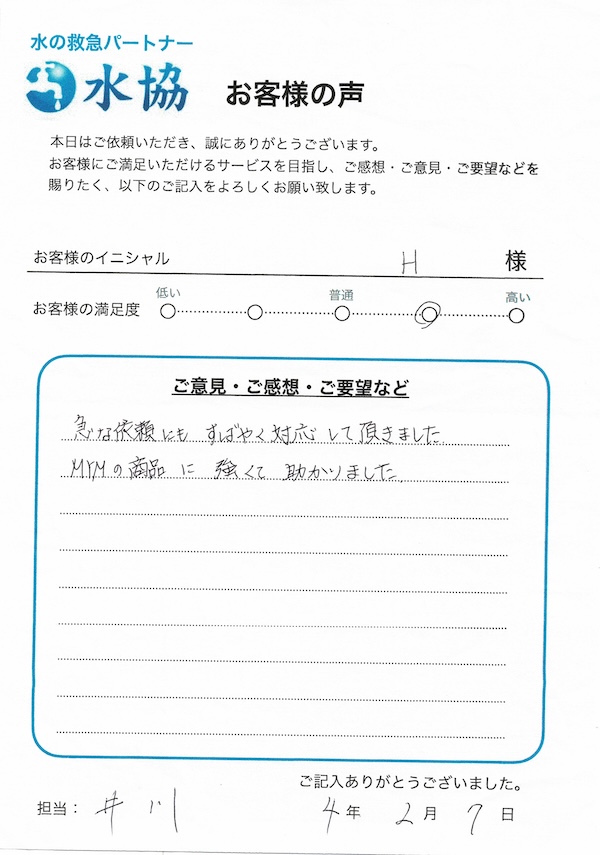 水の救急パートナー
水協 お客様の声
本日はご依頼いただき、誠にありがとうございます。
お客様にご満足いただけるサービスを目指し、ご感想・ご意見・ご要望などを
賜りたく、以下のご記入をよろしくお願い致します。
お客様のイニシャル H 様
低い 普通 高い
お客様の満足度
ご意見・ご感想・ご要望など
急な依頼にも すばやく対応して頂きました.
MYMの商品に 強くて 助かりました.
ご記入ありがとうございました。
担当： 井川 4年 2月 7日